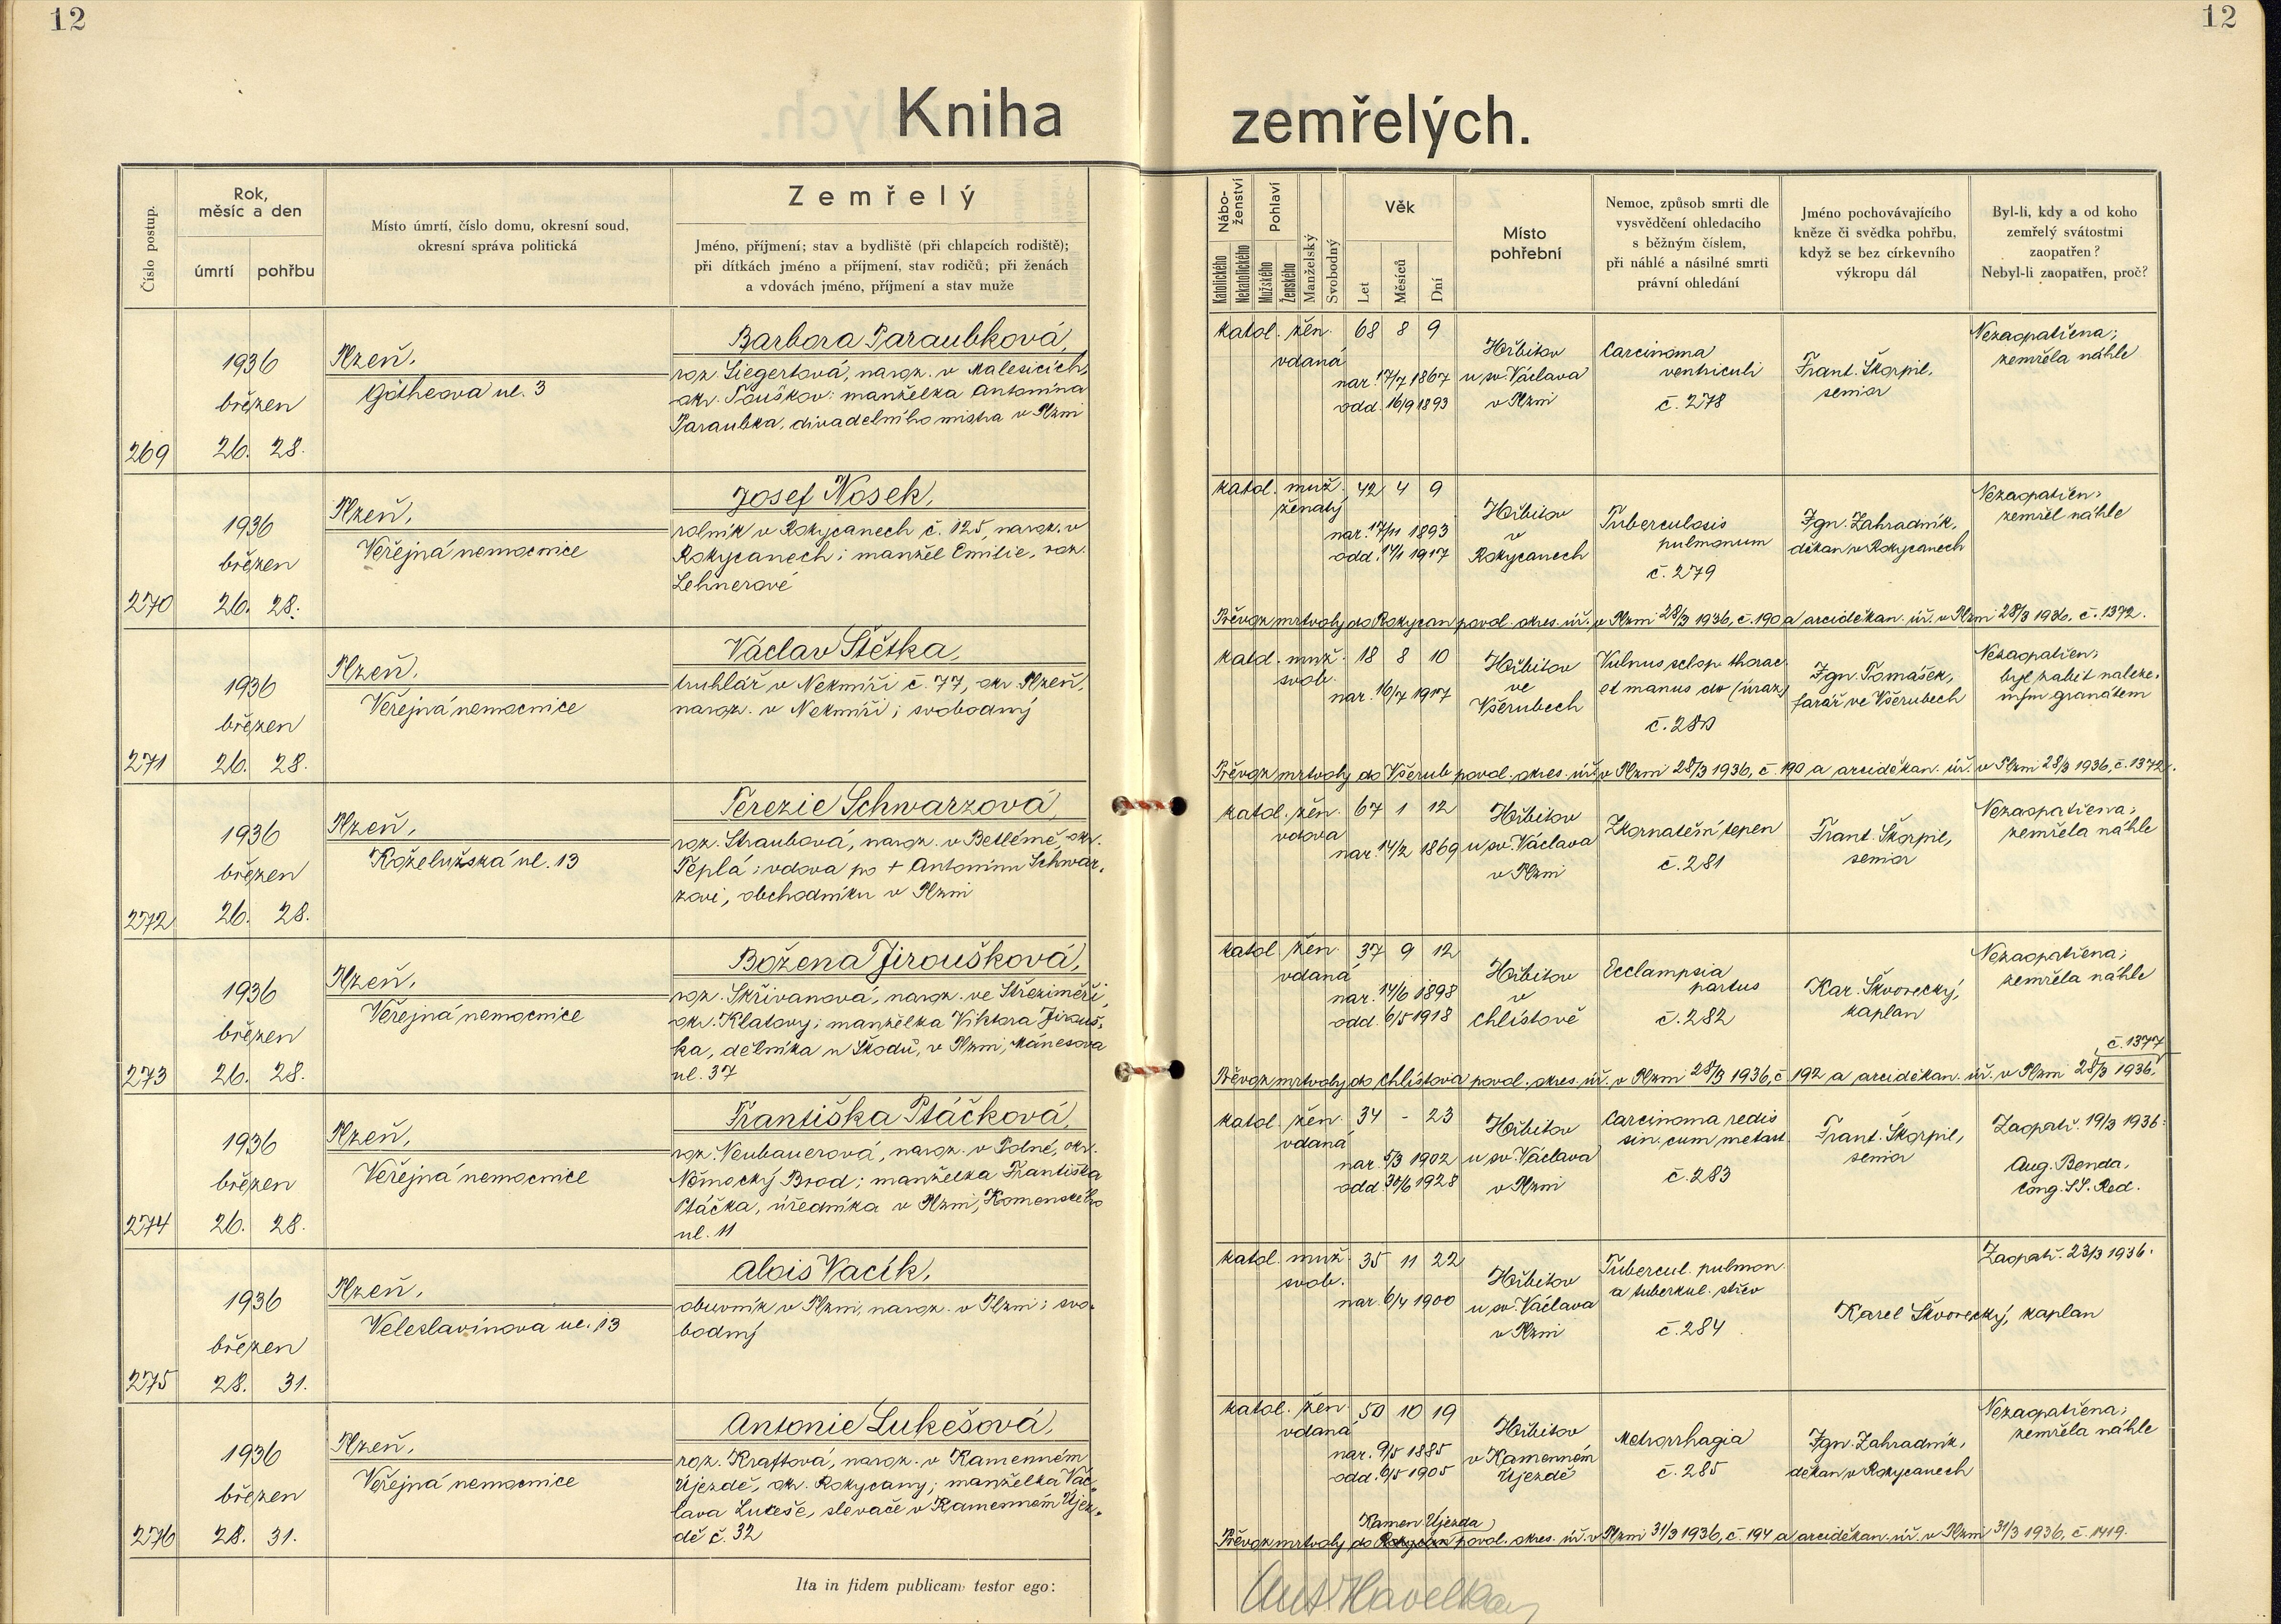 12
12
Kniha zemřelých.
Číslo postup.
Rok,
měsíc a den
úmrtí
pohřbu
Místo úmrtí, číslo domu, okresní soud,
okresní správa politická
Zemřelý
Jméno, příjmení; stav a bydliště (při chlapcích rodiště);
při dítkách jméno a příjmení, stav rodičů; při ženách
a vdovách jméno, příjmení a stav muže
Nábo-
ženství
Katolického
Nekatolického
Pohlaví
Mužského
Ženského
Manželský
Svobodný
Věk
Let
Měsíců
Dní
Místo
pohřební
Nemoc, způsob smrti dle
vysvědčení ohledacího
s běžným číslem,
při náhlé a násilné smrti
právní ohledání
Jméno pochovávajícího
kněze či svědka pohřbu,
když se bez církevního
výkropu dál
Byl-li, kdy a od koho
zemřelý svátostmi
zaopatřen?
Nebyl-li zaopatřen, proč?
269
1936
březen
26. 28.
Plzeň,
Götheova ul. 3
Barbora Paraubková,
roz. Siegertová, naroz. v Malesicích,
okr. Touškov; manželka Antonína
Paraubka, divadelního mistra v Plzni
katol. žen. 68 8 9
vdaná
nar. 17/7 1867
odd. 16/9 1893
Hřbitov
u sv. Václava
v Plzni
Carcinoma
ventriculi
č. 278
Frant. Škorpil,
senior
Nezaopatřena;
zemřela náhle
270
1936
březen
26. 28.
Plzeň,
Veřejná nemocnice
Josef Nosek,
rolník v Rokycanech č. 125, naroz. v
Rokycanech; manžel Emilie, roz.
Lehnerové
katol. muž. 42 4 9
ženatý
nar. 17/11 1893
odd. 17/1 1917
Hřbitov
v
Rokycanech
Tuberculosis
pulmonum
č. 279
Ign. Zahradník,
děkan v Rokycanech
Nezaopatřen;
zemřel náhle
Převoz mrtvoly do Rokycan povol. okres. úř. v Plzni 28/3 1936, č. 190 a arciděkan. úř. v Plzni 28/3 1936, č. 1372.
271
1936
březen
26. 28.
Plzeň,
Veřejná nemocnice
Václav Štětka,
truhlář v Nekmíři č. 77, okr. Plzeň,
naroz. v Nekmíři; svobodný
katol. muž. 18 8 10
svob.
nar. 16/7 1917
Hřbitov
ve
Všerubech
Vulnus sclop. thorac.
et manus dx (úraz)
č. 280
Ign. Tomášek,
farář ve Všerubech
Nezaopatřen;
byl zabit naleze-
ným granátem
Převoz mrtvoly do Všerub povol. okres. úř. v Plzni 28/3 1936, č. 190 a arciděkan. úř. v Plzni 28/3 1936, č. 1372.
272
1936
březen
26. 28.
Plzeň,
Koželužská ul. 13
Terezie Schwarzová,
roz. Straubová, naroz. v Betlémě, okr.
Teplá; vdova po + Antonínu Schwar-
zovi, obchodníku v Plzni
katol. žen. 67 1 12
vdova
nar. 14/2 1869
Hřbitov
u sv. Václava
v Plzni
Zkornatění tepen
č. 281
Frant. Škorpil,
senior
Nezaopatřena;
zemřela náhle
273
1936
březen
26. 28.
Plzeň,
Veřejná nemocnice
Božena Jiroušková,
roz. Skřivanová, naroz. ve Střeziměři,
okr. Klatovy; manželka Viktora Jirouš-
ka, dělníka u Škodů, v Plzni, Mánesova
ul. 37
katol. žen. 37 9 12
vdaná
nar. 14/6 1898
odd. 6/5 1918
Hřbitov
v
Chlístově
Ecclampsia
partus
č. 282
Kar. Škvorecký,
kaplan
Nezaopatřena;
zemřela náhle
č. 1377
Převoz mrtvoly do Chlístova povol. okres. úř. v Plzni 28/3 1936, č. 192 a arciděkan. úř. v Plzni 28/3 1936,
274
1936
březen
26. 28.
Plzeň,
Veřejná nemocnice
Františka Ptáčková,
roz. Neubauerová, naroz. v Polné, okr.
Německý Brod; manželka Františka
Ptáčka, úředníka v Plzni, Komenského
ul. 11
katol. žen. 34 - 23
vdaná
nar. 5/3 1902
odd. 30/6 1928
Hřbitov
u sv. Václava
v Plzni
Carcinoma redis
sin. cum metast.
č. 283
Frant. Škorpil,
senior
Zaopatř. 19/3 1936:
Aug. Benda,
Cong. SS. Red.
275
1936
březen
28. 31.
Plzeň,
Veleslavínova ul. 13
Alois Vacík,
obuvník v Plzni, naroz. v Plzni; svo-
bodný
katol. muž. 35 11 22
svob.
nar. 6/4 1900
Hřbitov
u sv. Václava
v Plzni
Tubercul. pulmon.
a tuberkul. střev
č. 284
Zaopatř. 23/3 1936.
Karel Škvorecký, kaplan
276
1936
březen
28. 31.
Plzeň,
Veřejná nemocnice
Antonie Lukešová,
roz. Kraftová, naroz. v Kamenném
Újezdě, okr. Rokycany; manželka Vác-
lava Lukeše, slevače v Kamenném Újez-
dě č. 32
katol. žen. 50 10 19
vdaná
nar. 9/5 1885
odd. 6/5 1905
Hřbitov
v Kamenném
Újezdě
Metrorrhagia
č. 285
Ign. Zahradník,
děkan v Rokycanech
Nezaopatřena;
zemřela náhle
Kamen. Újezda
Převoz mrtvoly do Rokycan povol. okres. úř. v Plzni 31/3 1936, č. 194 a arciděkan. úř. v Plzni 31/3 1936, č. 1419.
Ita in fidem publicam testor ego:
Ant. Havelka